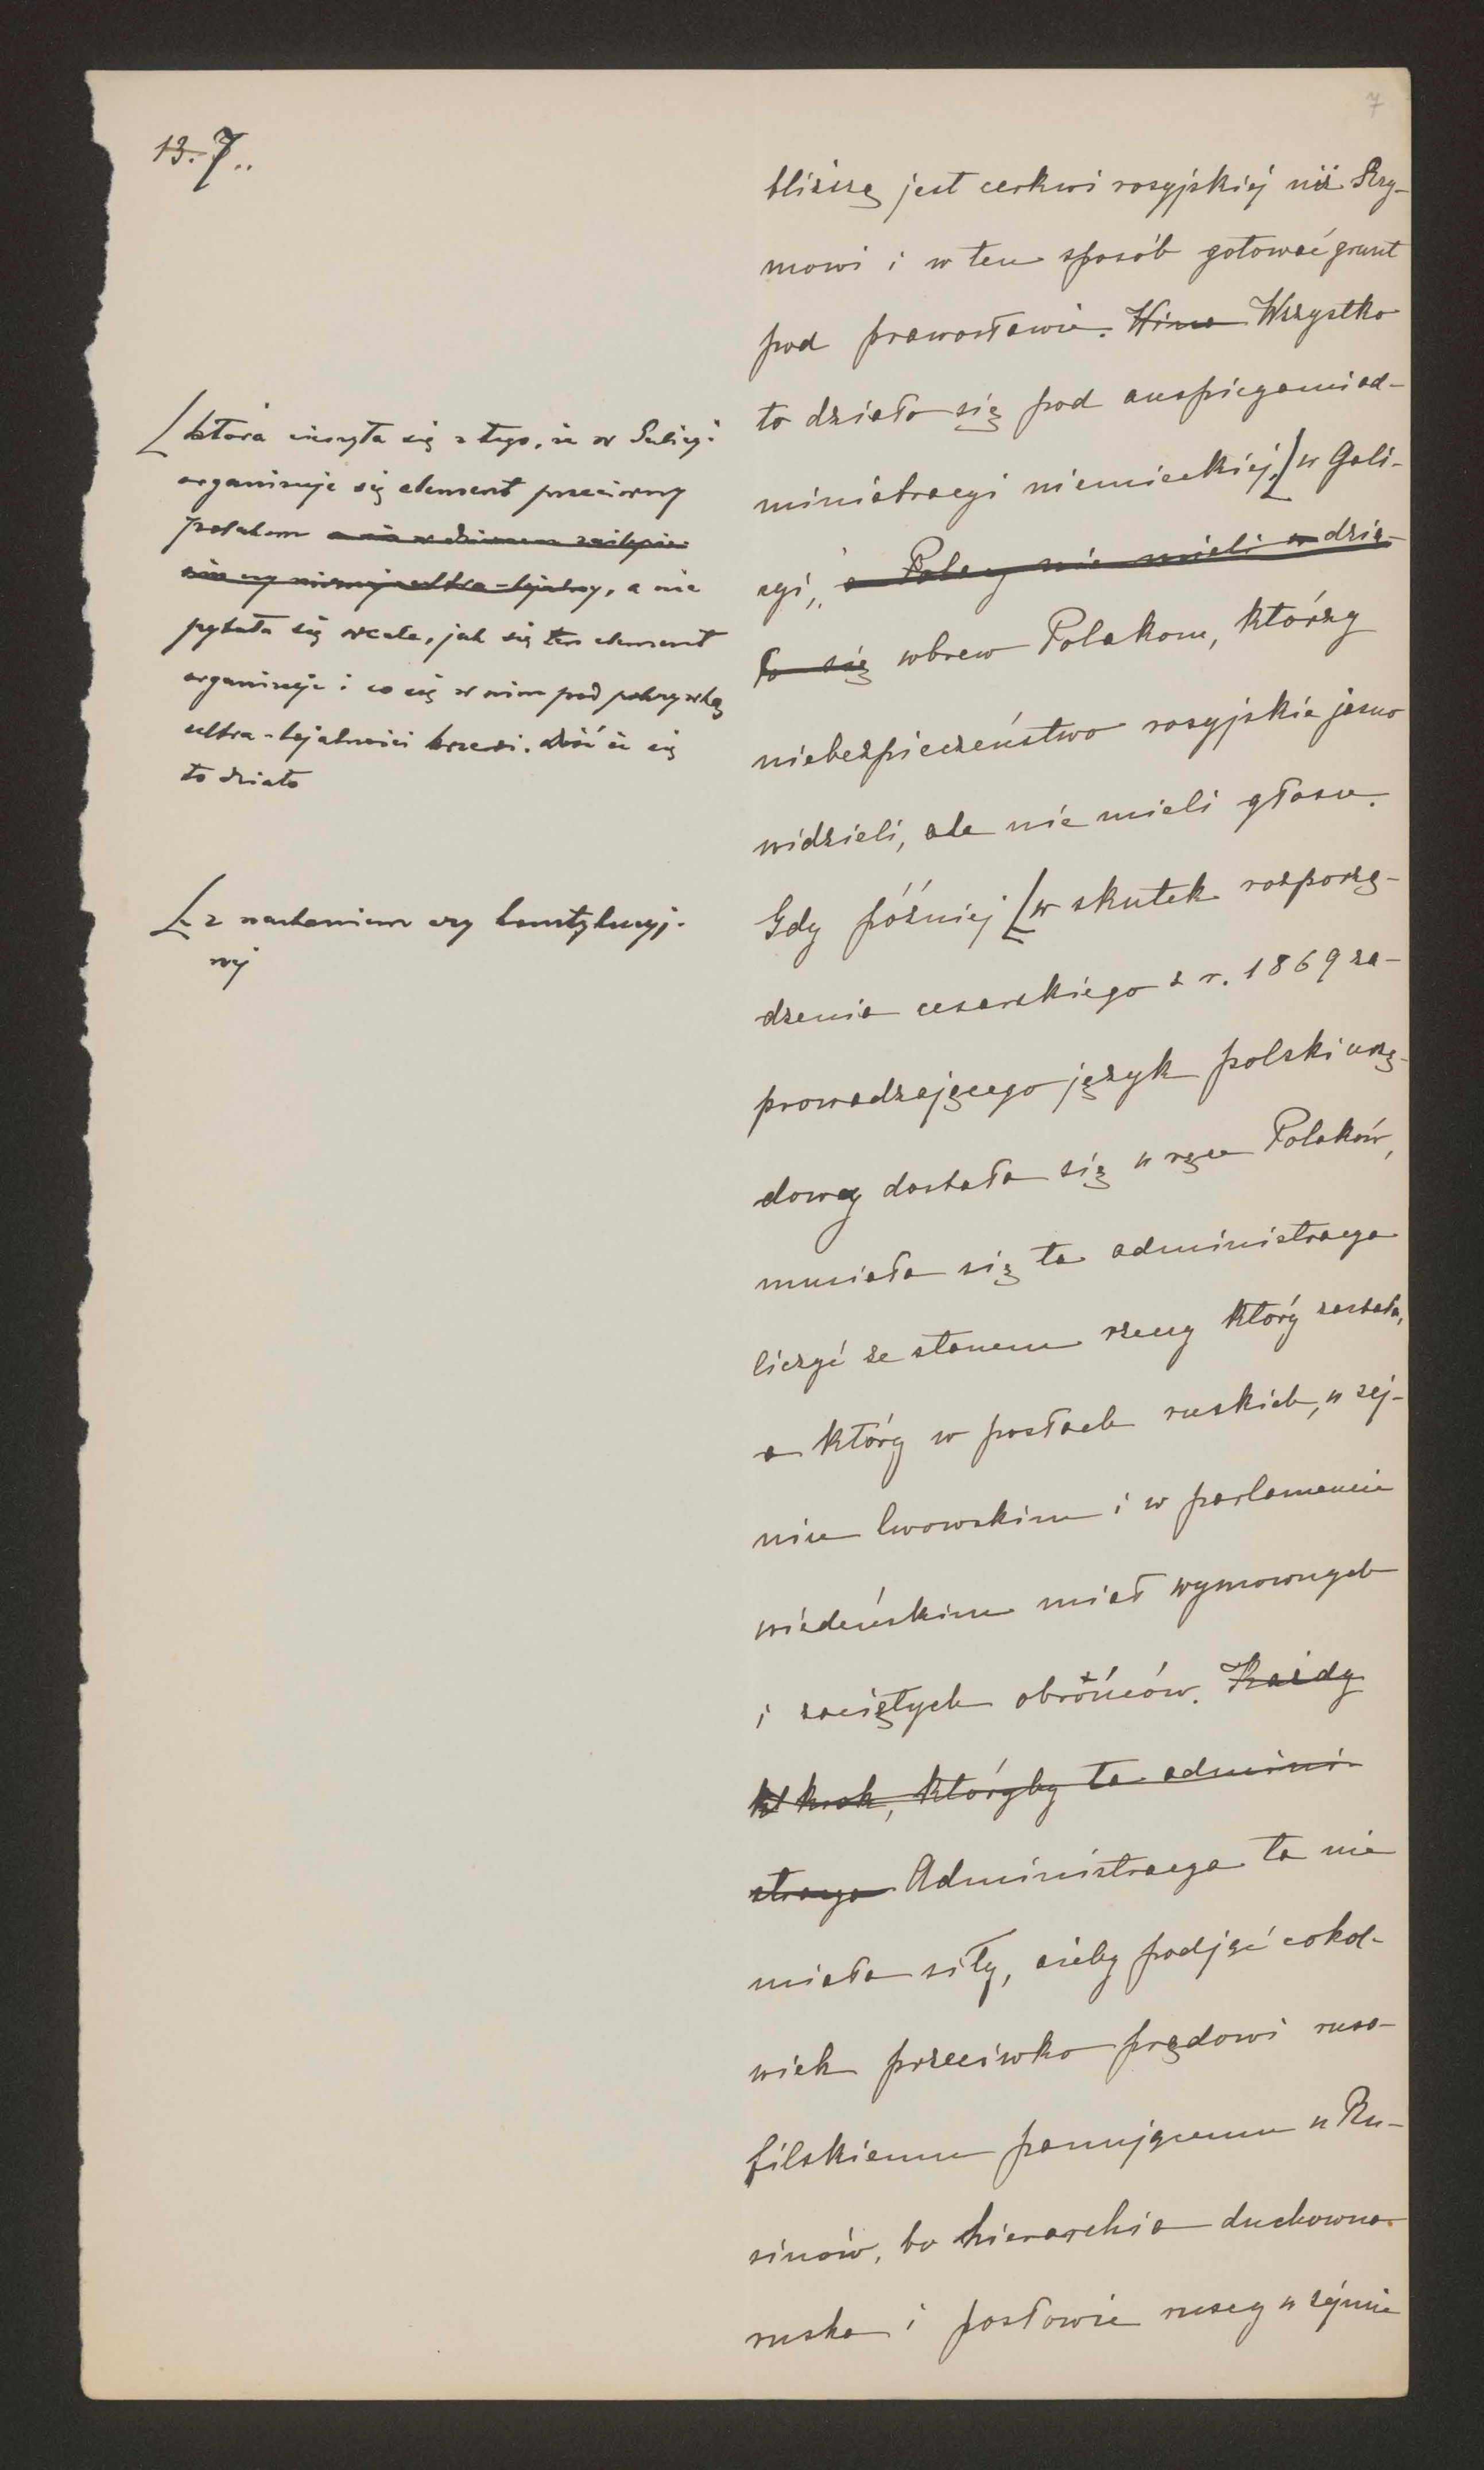 7
13. 7..
bliższą jest cerkwi rosyjskiej niż Rzy-
mowi i w ten sposób gotować grunt
pod prawosławie. Wina Wszystko
to działo się pod auspicyami ad-
ministracyi niemieckiej, [w Gali-
cyi, a Polacy nie mieli w dzia-
to się wbrew Polakom, którzy
niebezpieczeństwo rosyjskie jasno
widzieli, ale nie mieli głosu.
Gdy później [w skutek rozporzą-
dzenia cesarskiego z r. 1869 za-
prowadzającego język polski urzę-
dowy dostała się w ręce Polaków,
musiała się ta administracya
liczyć ze stanem rzeczy który zastała,
a który w posłach ruskich, w sej-
mie lwowskim i w parlamencie
wiedeńskim miał wymownych
i zaciętych obrońców. Każdy
krok, któryby ta admini-
stracya Administracya ta nie
miała siły, ażeby podjąć cokol-
wiek przeciwko prądowi ruso-
filskiemu panującemu u Ru-
sinów, bo hierarchia duchowna
ruska i posłowie ruscy w sejmie
[która cieszyła się z tego, że w Galicyi
organizuje się element przeciwny
polakom
ultra-lojalny, a nie
pytała się wcale, jak się ten element
organizuje i co się w nim pod pokrywką
ultra-lojalności krzewi. dość że się
to działo
[z nastaniem ery konstytucyj-
nej